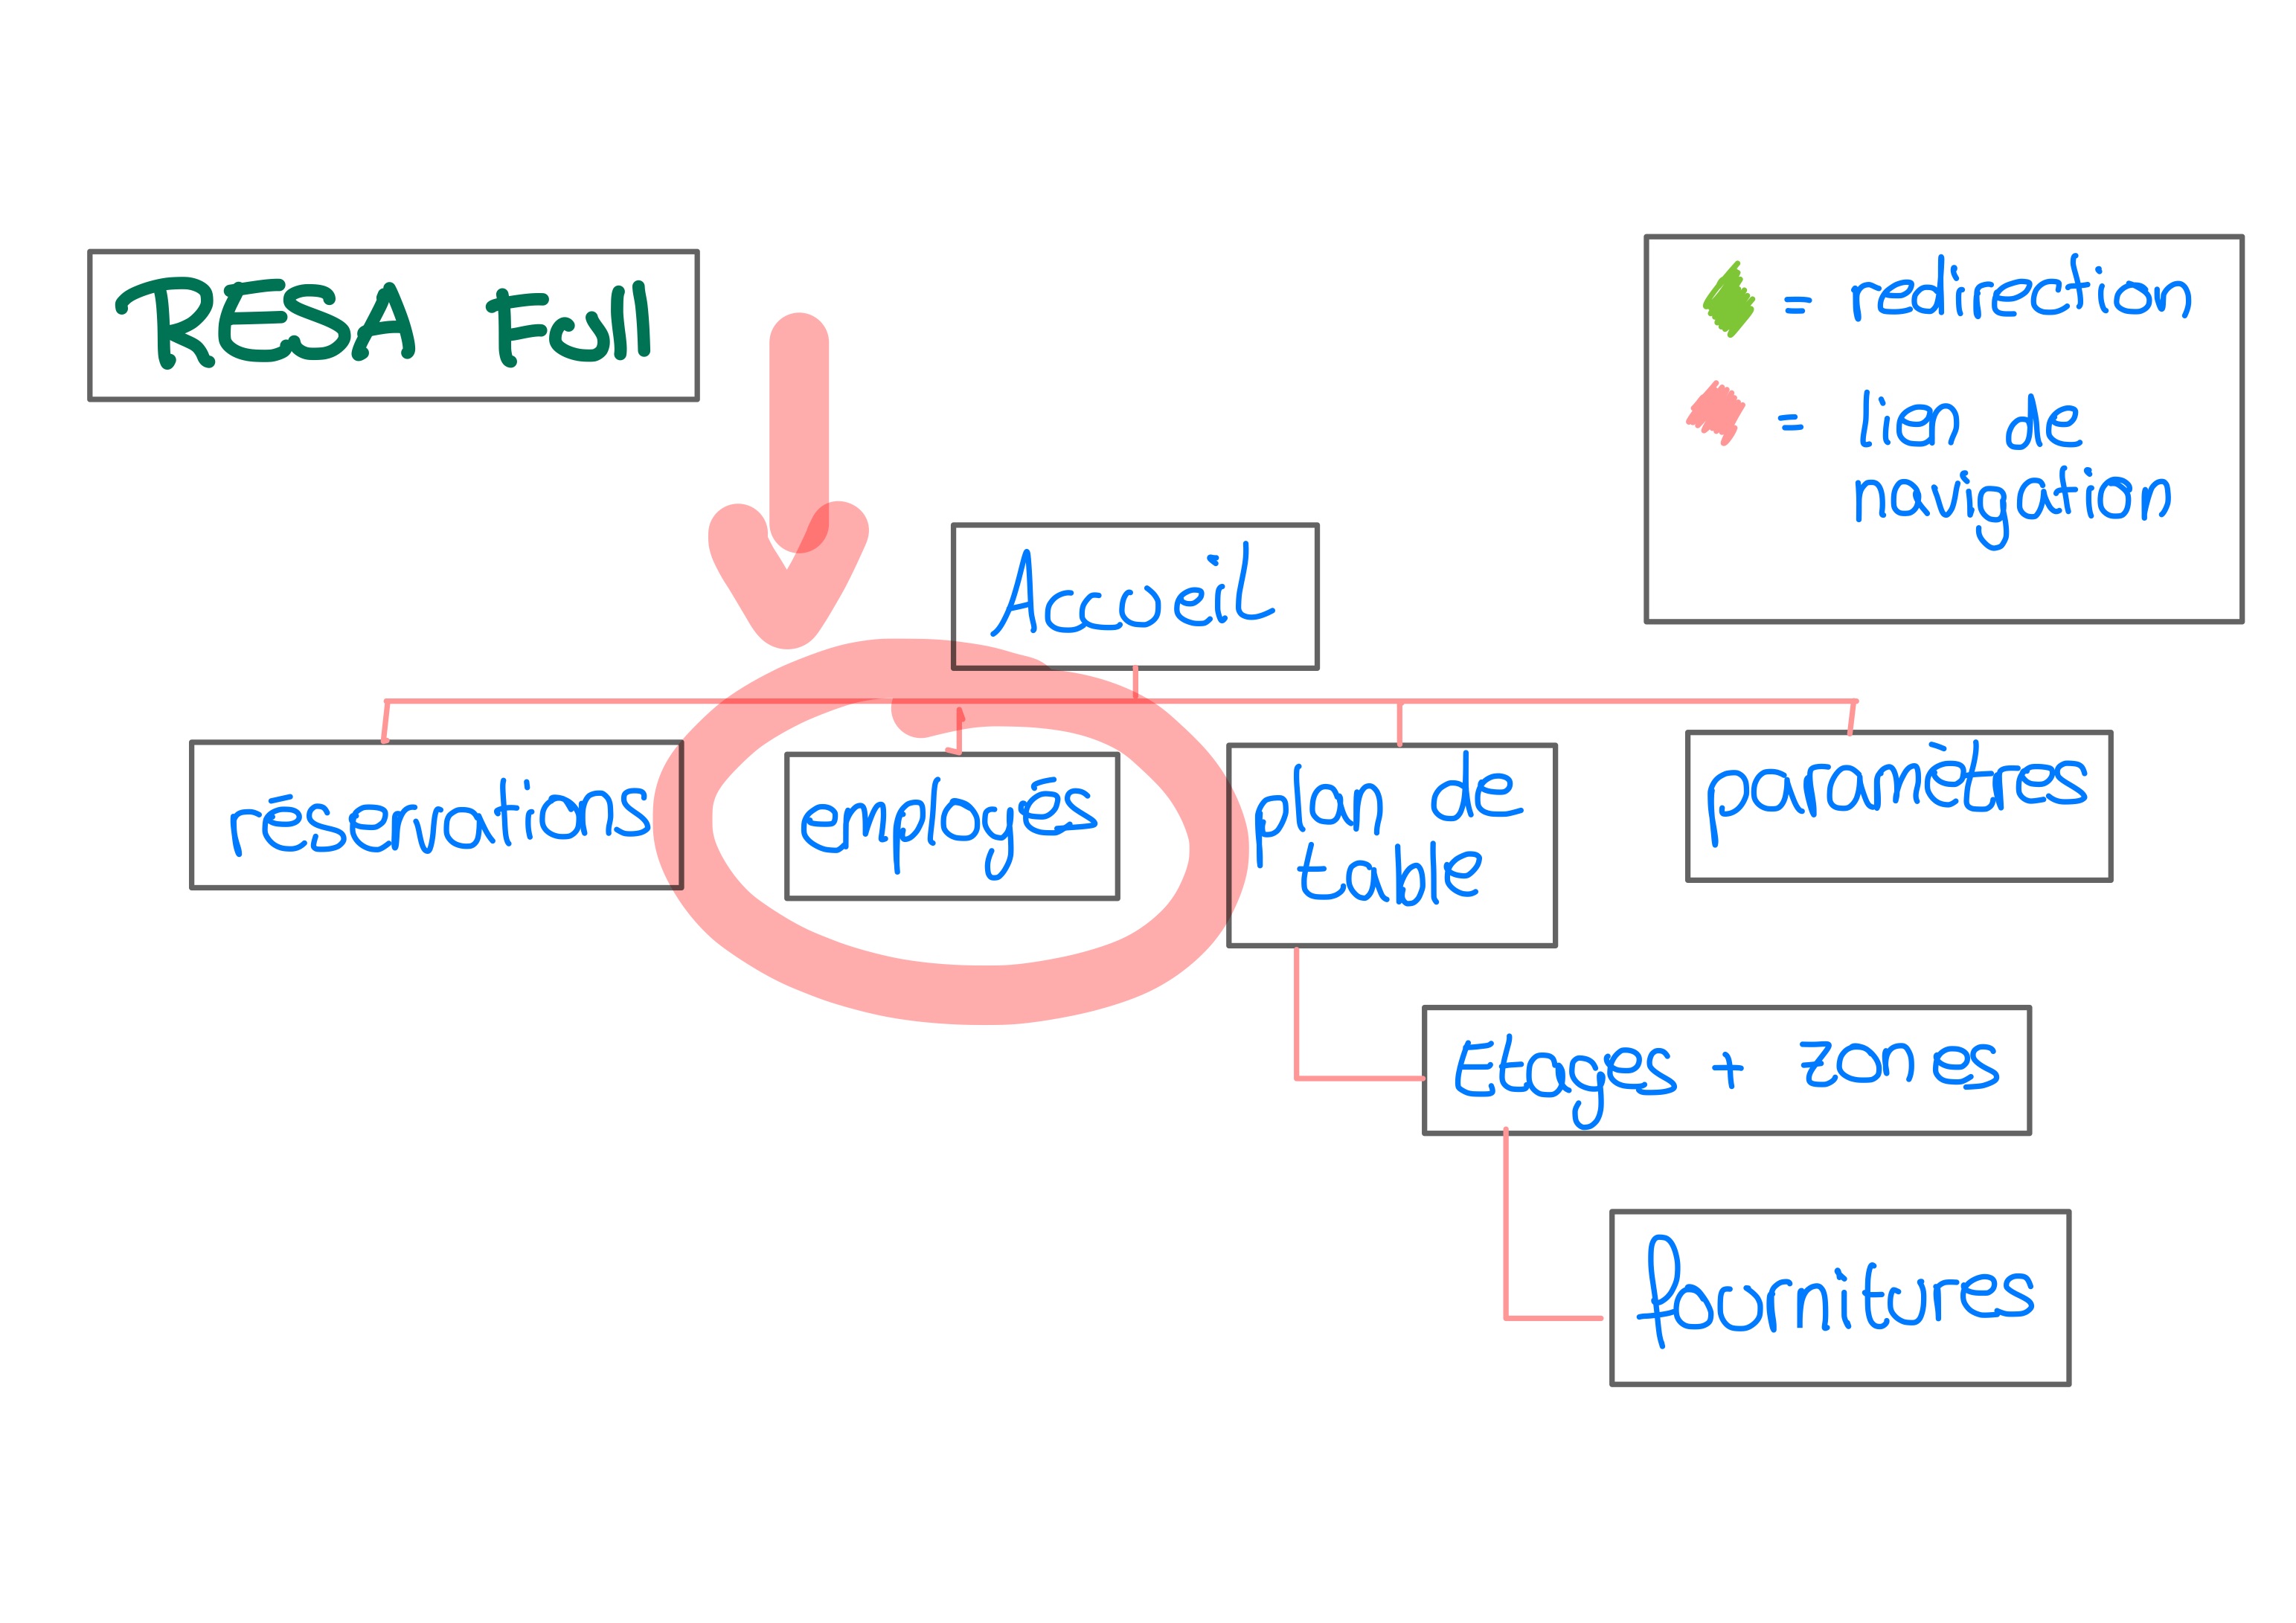 RESA Fall
= redirection
= lien de
navigation
Accueil
réservations
employés
plan de
table
paramètres
Etages + zones
fournitures